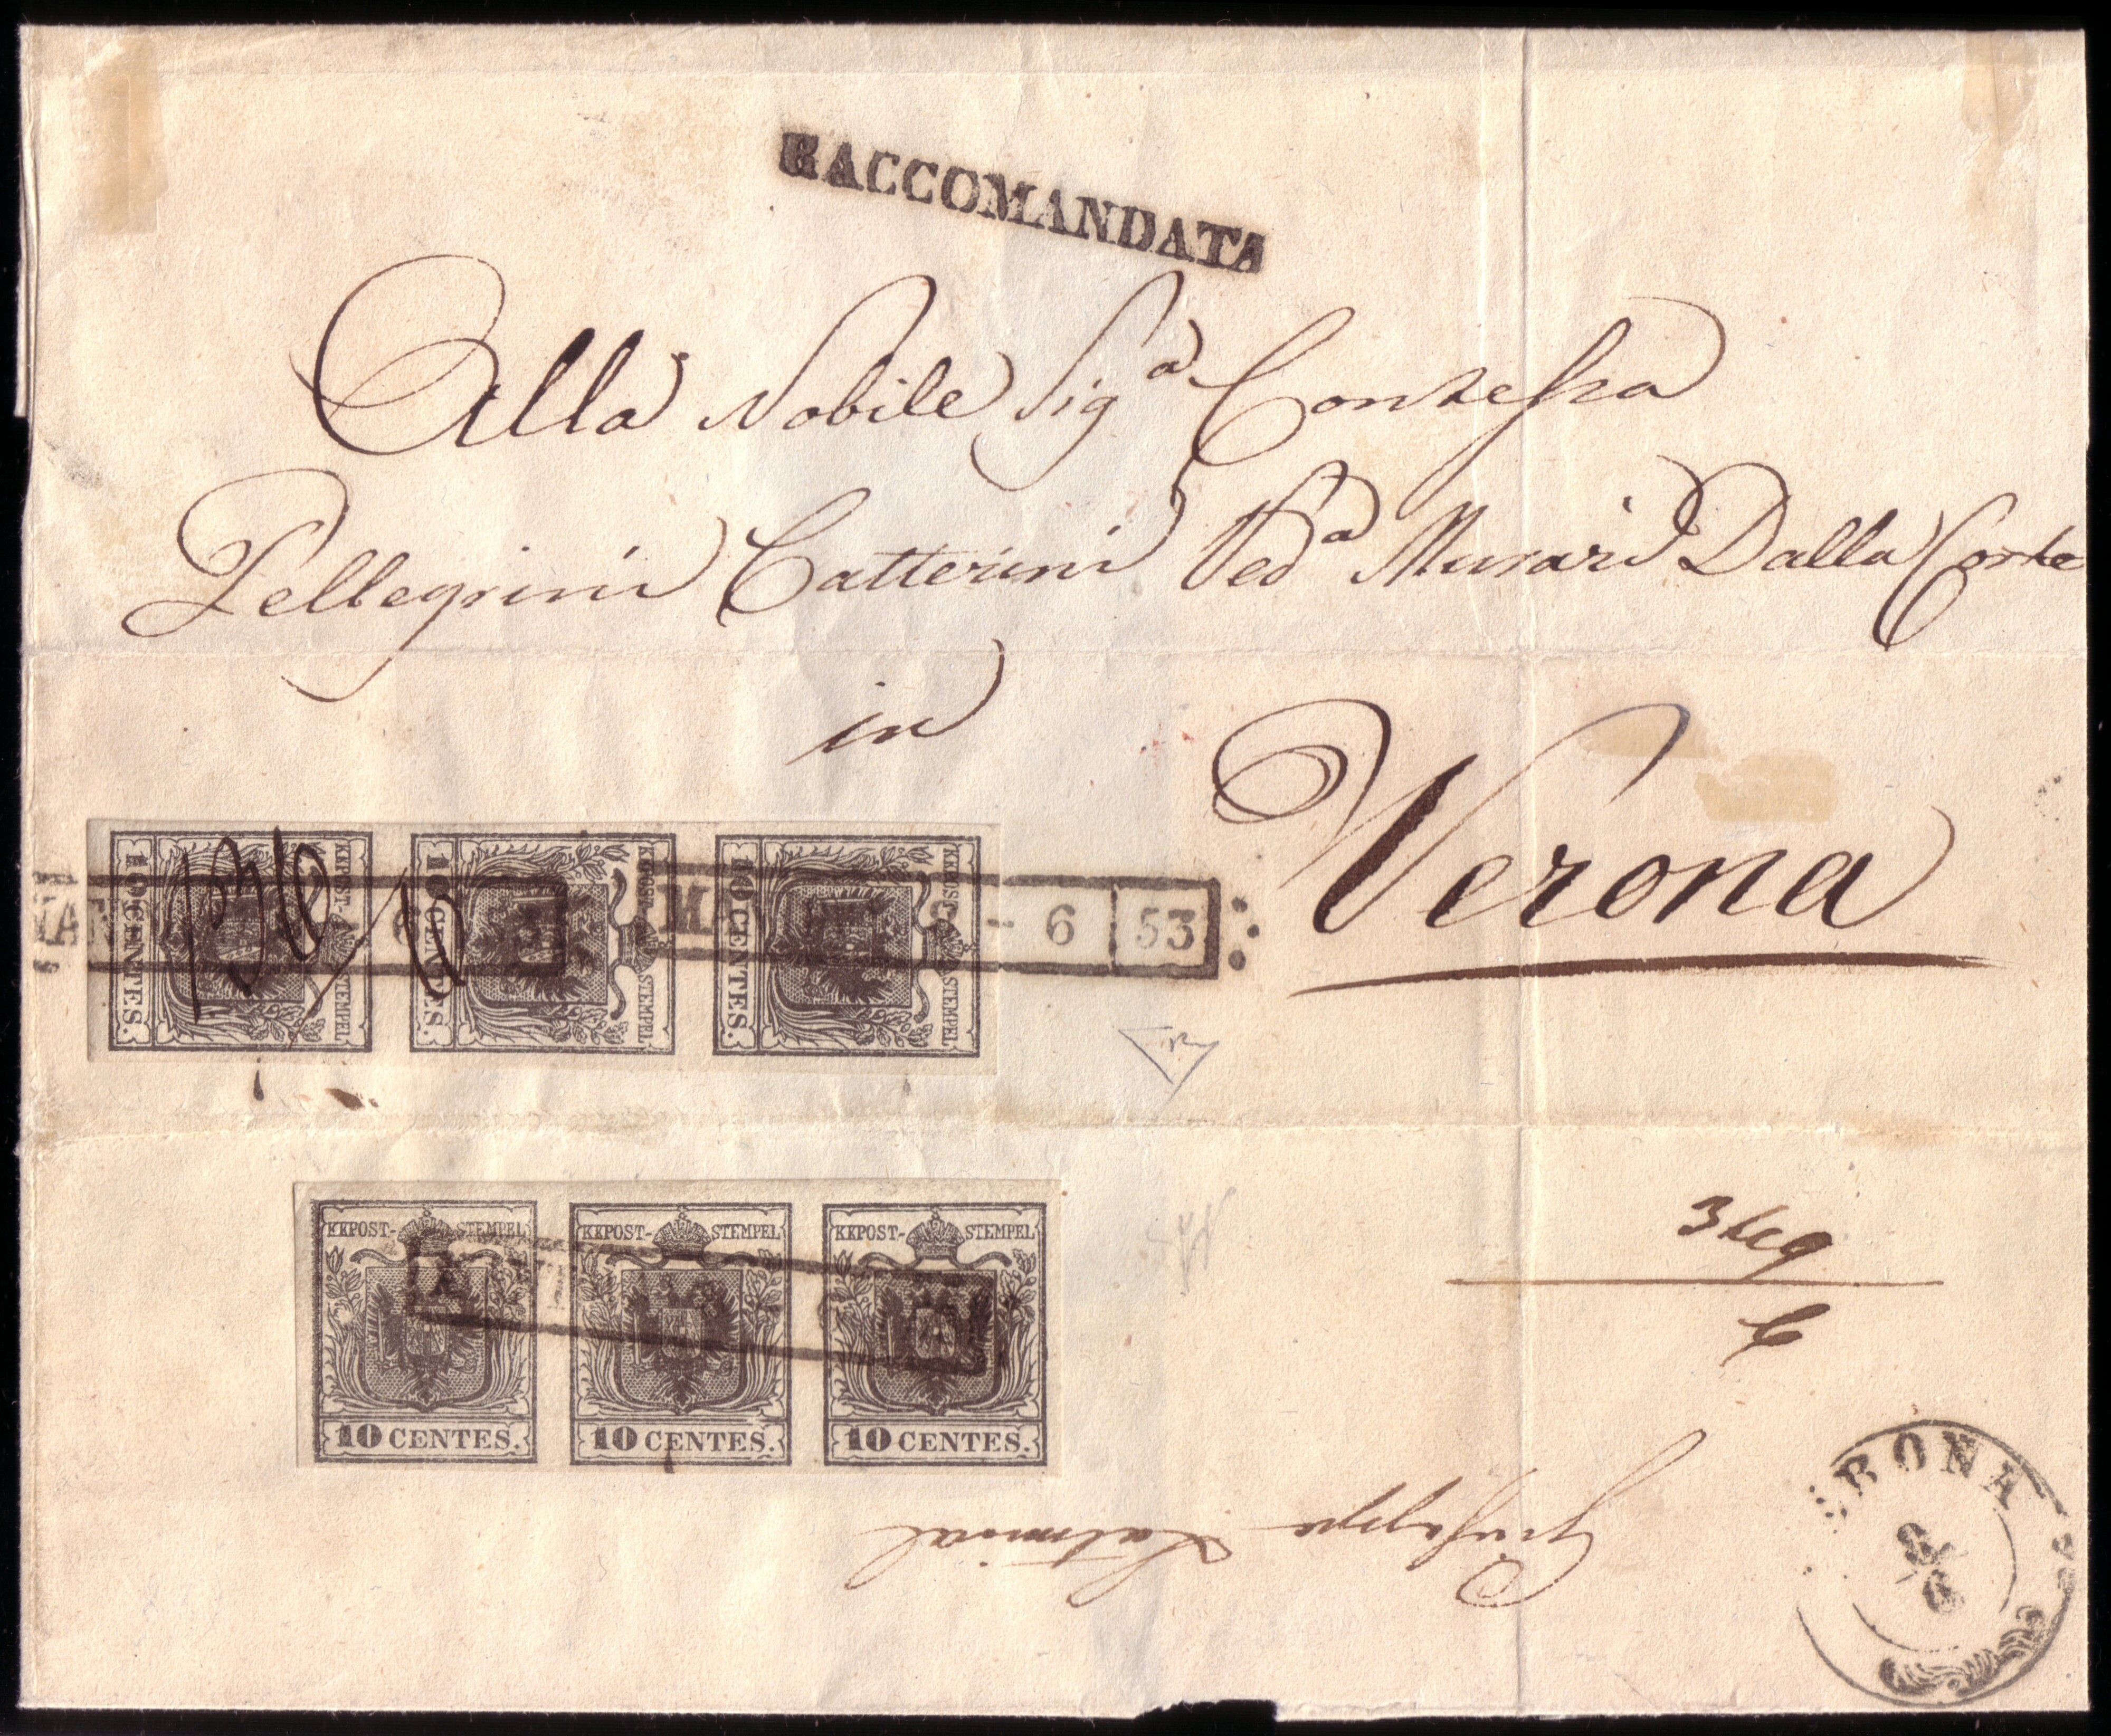 RACCOMANDATA
Alla Nobile Sig.a Contessa
Pellegrini Catterini Ved.a Murari Dalla Corte
in
Verona
10 CENTES. KKPOST-STEMPEL
10 CENTES. KKPOST-STEMPEL
10 CENTES. KKPOST-STEMPEL
136
6 53
KKPOST-STEMPEL
10 CENTES.
KKPOST-STEMPEL
10 CENTES.
KKPOST-STEMPEL
10 CENTES.
6
Giuseppe
ERONA
8/6